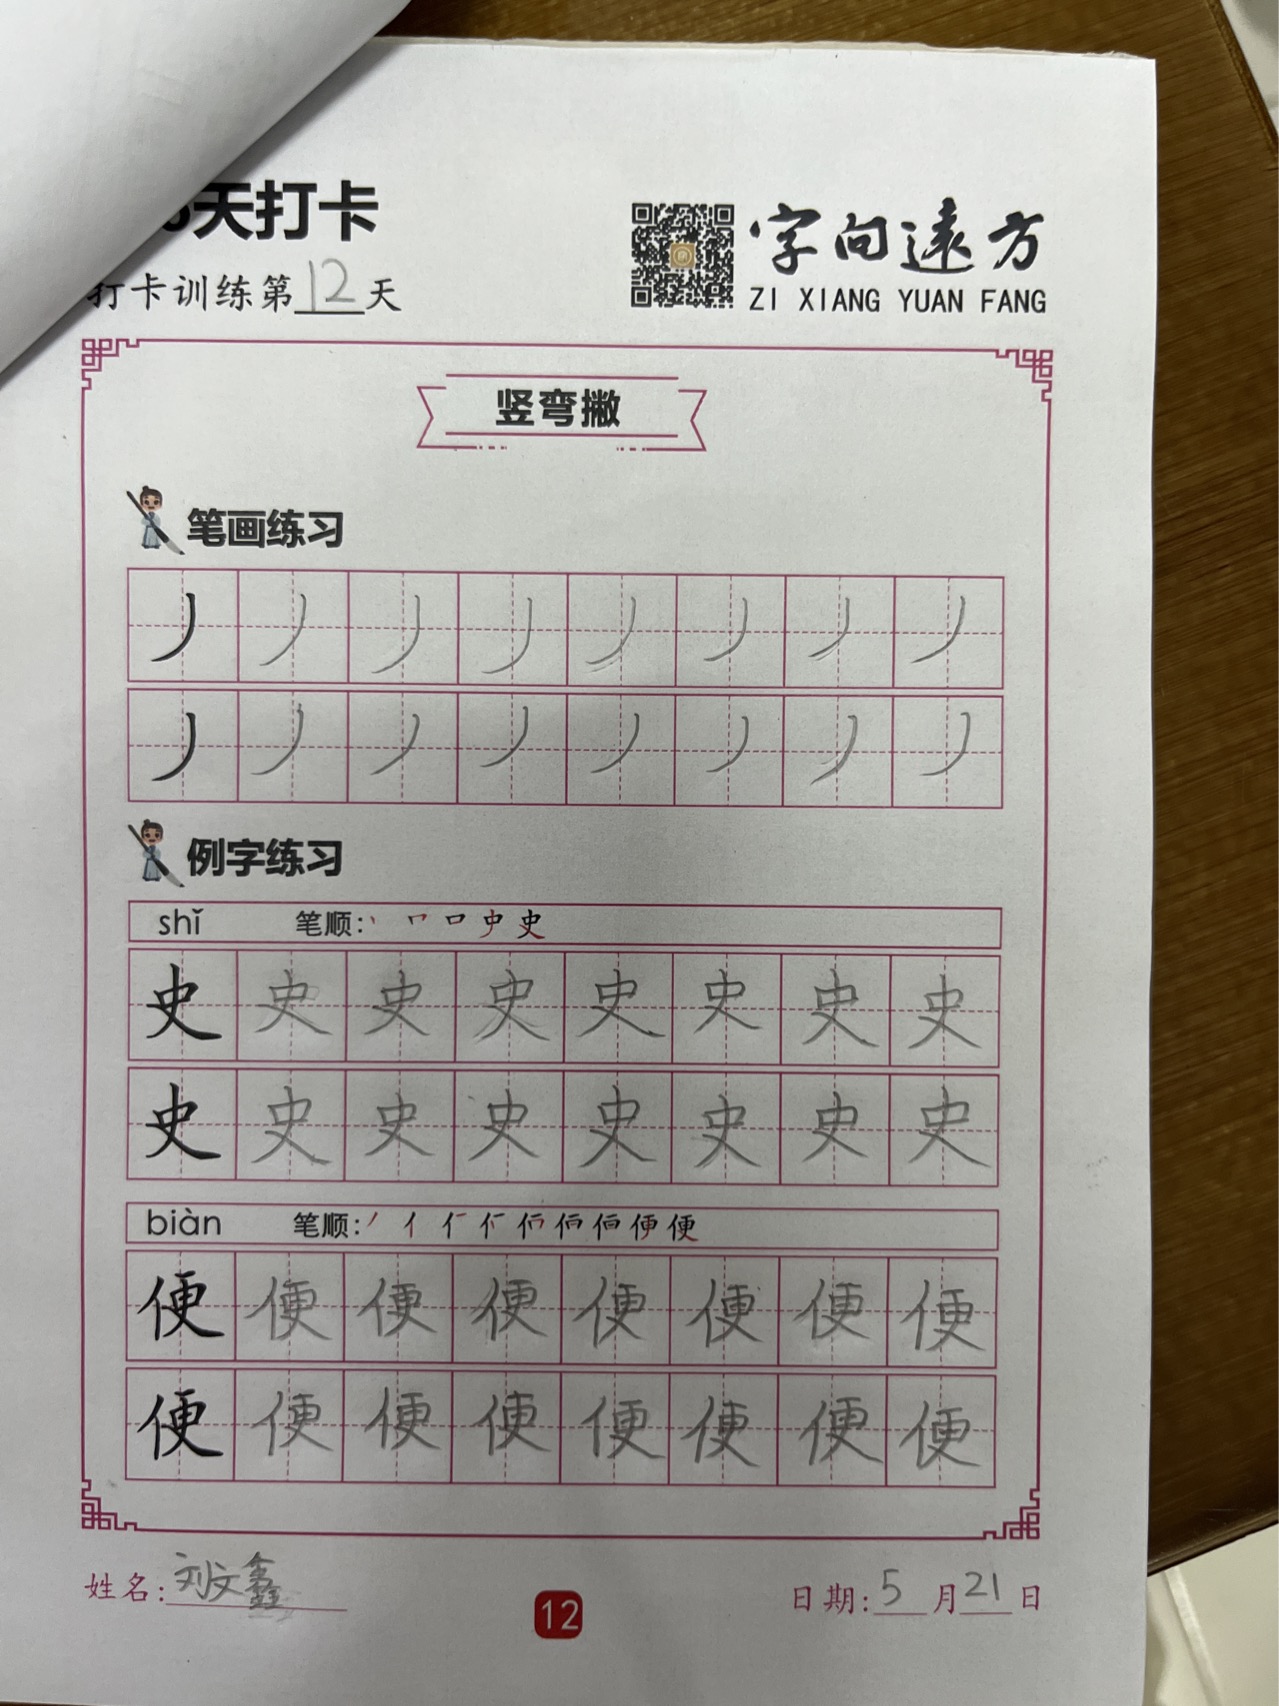 天打卡
字向遠方
打卡训练第12天
ZI XIANG YUAN FANG
竖弯撇
笔画练习
丿 丿 丿 丿 丿 丿 丿 丿
丿 丿 丿 丿 丿 丿 丿 丿
例字练习
shǐ 笔顺:
史 史 史 史 史 史 史 史
史 史 史 史 史 史 史 史
biàn 笔顺:
便 便 便 便 便 便 便 便
便 便 便 便 便 便 便 便
姓名:刘文鑫
12
日期:5月21日